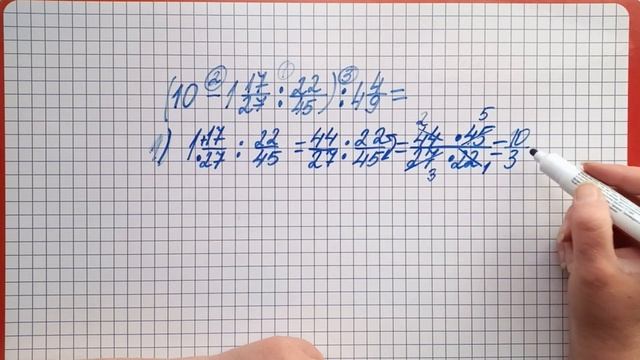 (10 - 1 17/27 : 22/45) : 4 4/9 =
1) 1 17/27 : 22/45 = 44/27 : 22/45 = 44 · 45 / 27 · 22 = 10/3